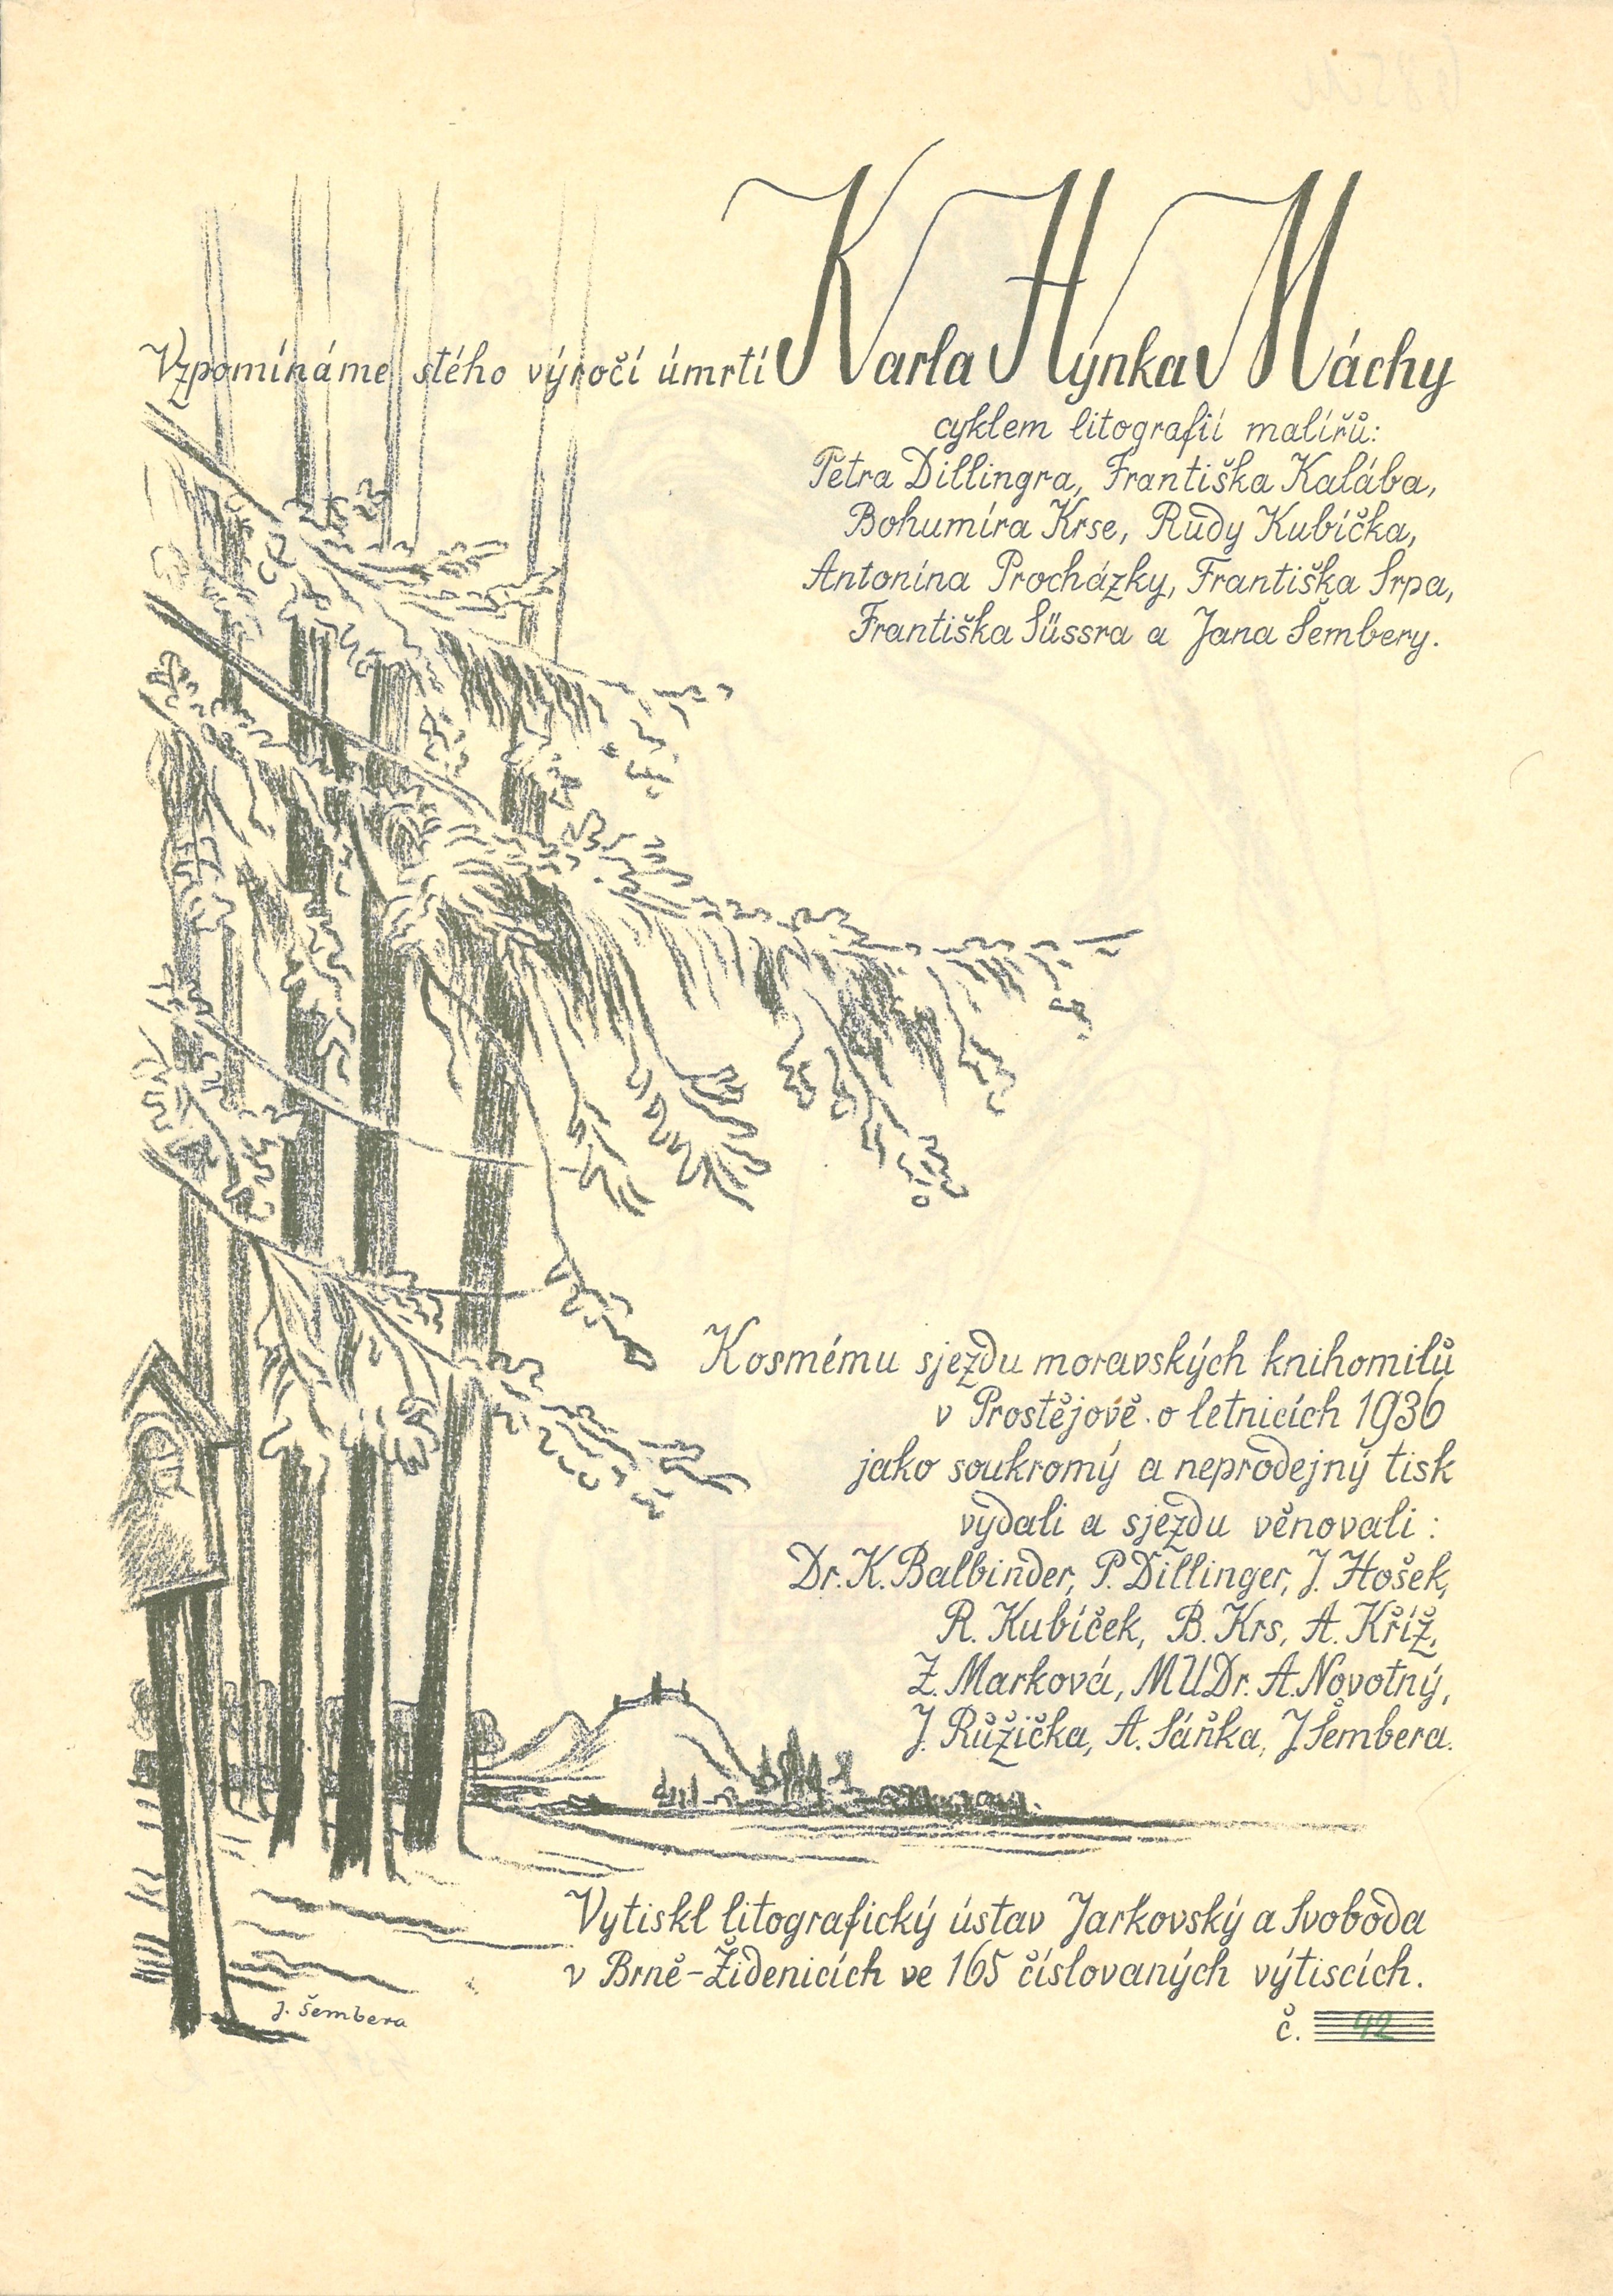 Vzpomínáme stého výročí úmrtí Karla Hynka Máchy
cyklem litografií malířů:
Petra Dillingra, Františka Kalába,
Bohumíra Krse, Rudy Kubíčka,
Antonína Procházky, Františka Srpa,
Františka Süssra a Jana Šembery.
K osmému sjezdu moravských knihomilů
v Prostějově o letnicích 1936
jako soukromý a neprodejný tisk
vydali a sjezdu věnovali:
Dr. K. Balbinder, P. Dillinger, J. Hošek,
R. Kubíček, B. Krs, A. Kříž,
Z. Marková, MUDr. A. Novotný,
J. Růžička, A. Sáňka, J. Šembera.
Vytiskl litografický ústav Jarkovský a Svoboda
v Brně-Židenicích ve 165 číslovaných výtiscích.
č. 42
J. Šembera